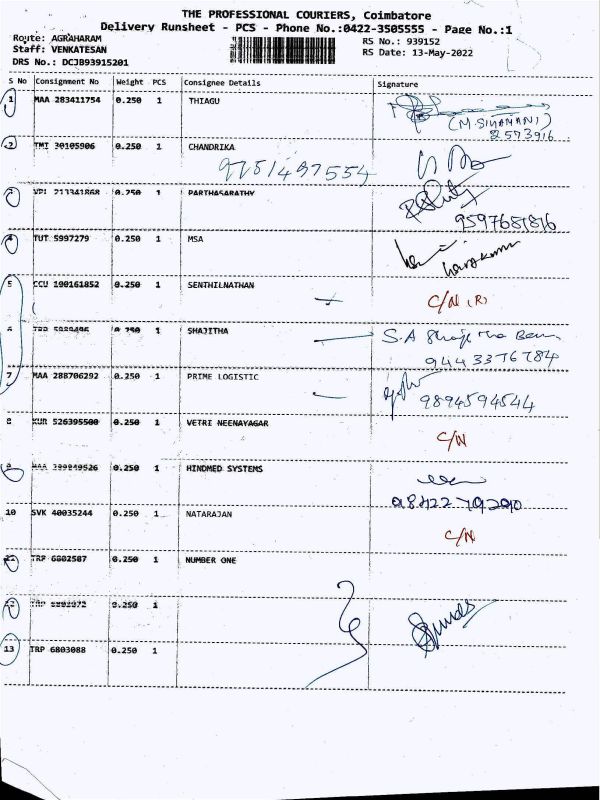 THE PROFESSIONAL COURIERS, Coimbatore
Delivery Runsheet - PCS - Phone No.:0422-3505555 - Page No.:1
Route: AGRAHARAM
RS No.: 939152
Staff: VENKATESAN
RS Date: 13-May-2022
DRS No.: DCJB93915201
S No Consignment No Weight PCS Consignee Details Signature
1 MAA 283411754 0.250 1 THIAGU
(M.SIVAMANI)
2573916
2 TMT 30105906 0.250 1 CHANDRIKA
9751497554
3 VPI 211341868 0.250 1 PARTHASARATHY
9597681816
4 TUT 5997279 0.250 1 MSA
5 CCU 190161852 0.250 1 SENTHILNATHAN C/N (R)
6 0.250 1 SHAJITHA S.A
9443376784
7 MAA 288706292 0.250 1 PRIME LOGISTIC
9894594544
8 KUR 526395500 0.250 1 VETRI NEENAYAGAR C/N
9 MAA 0.250 1 HINDMED SYSTEMS
10 SVK 40035244 0.250 1 NATARAJAN C/N
11 TRP 6802507 0.250 1 NUMBER ONE
12 TRP 0.250 1
13 TRP 6803088 0.250 1